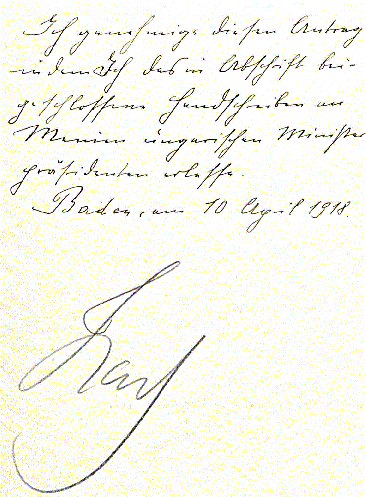 Ich genehmige diesen Antrag
indem Ich das in Abschrift bei-
geschlossene Handschreiben an
Meinen ungarischen Minister
präsidenten erlasse.
Baden, am 10 April 1918.
Karl